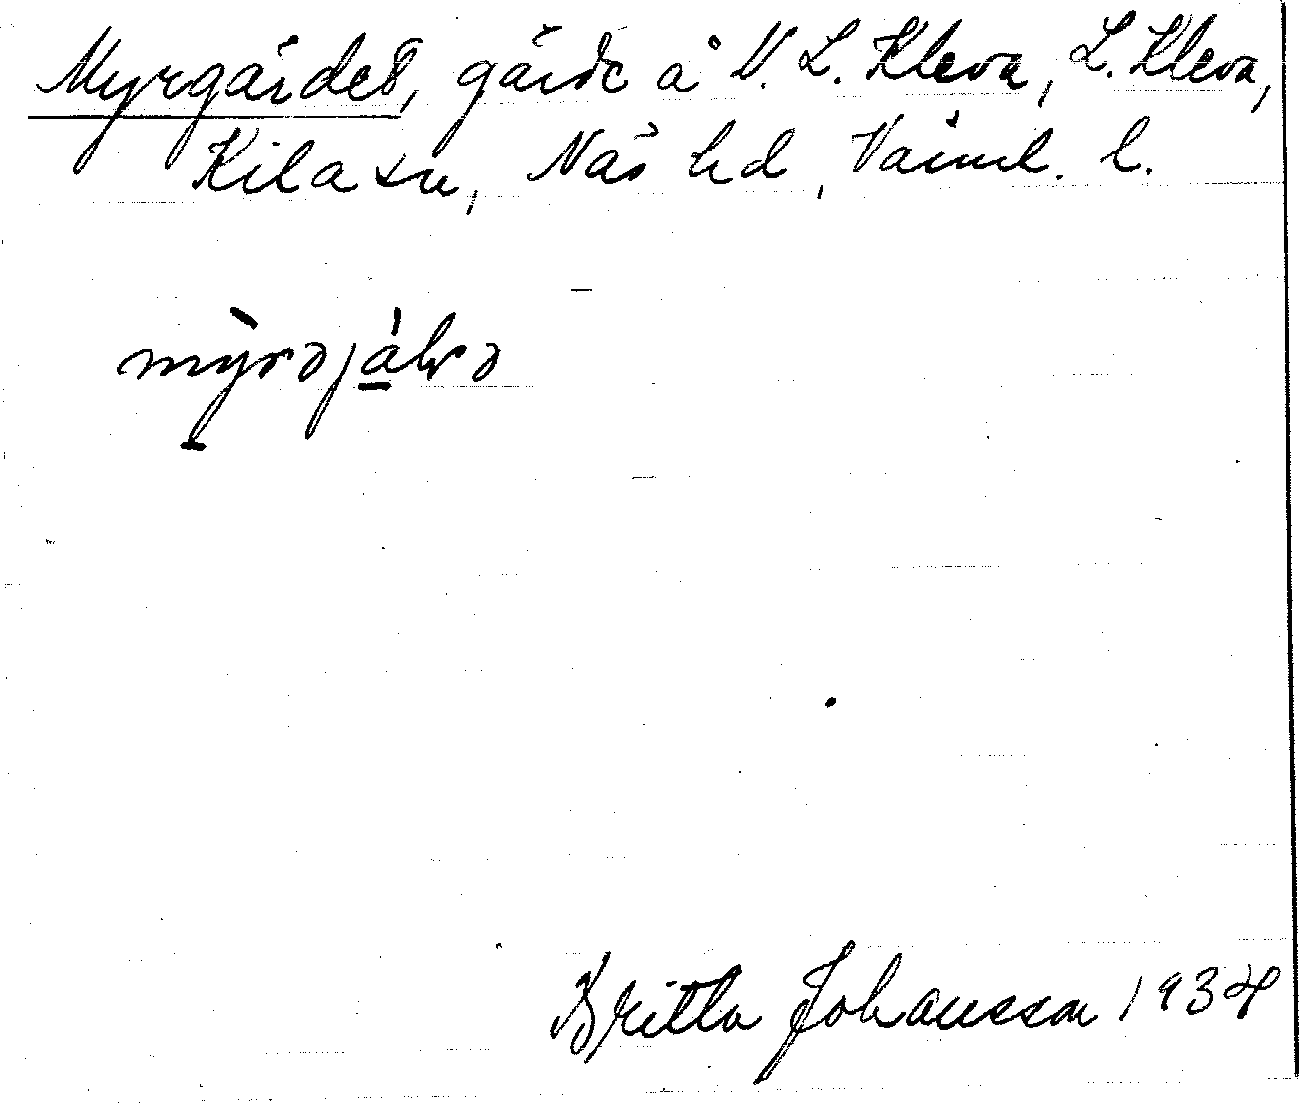 Myrgärdet, gärde å V. L. Kleva, L. Kleva,
Kila sn, Näs hd, Värml. l.
Britta Johansson 1934